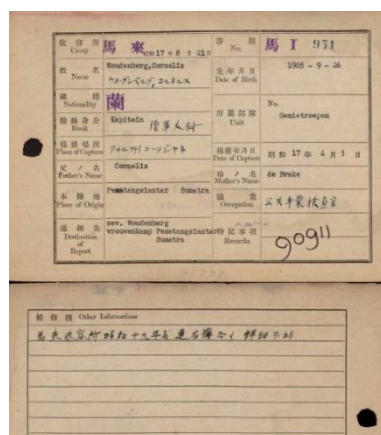 收容所 Camp 馬來 昭和17年8月21日 番號 No. 馬 I 931
姓名 Name Woudenberg,Cornelis 生年月日 Date of Birth 1905 - 9 - 26
國籍 Nationality 蘭 所屬部隊 Unit No. Genietroepen
階級身分 Rank Kapitein 陸軍大尉
捕獲場所 Place of Capture 捕獲年月日 Date of Capture 昭和 17年 4月 5日
父ノ名 Father's Name Cornelis 母ノ名 Mother's Name de Brake
本籍地 Place of Origin Pematangsiantar Sumatra 職業 Occupation
通報先 Destination of Report mev. Woudenberg
vrouwenkamp Pematangsiantar
Sumatra
特記事項 Remarks 90911
補修欄 Other Informations
馬來收容所昭和十九年